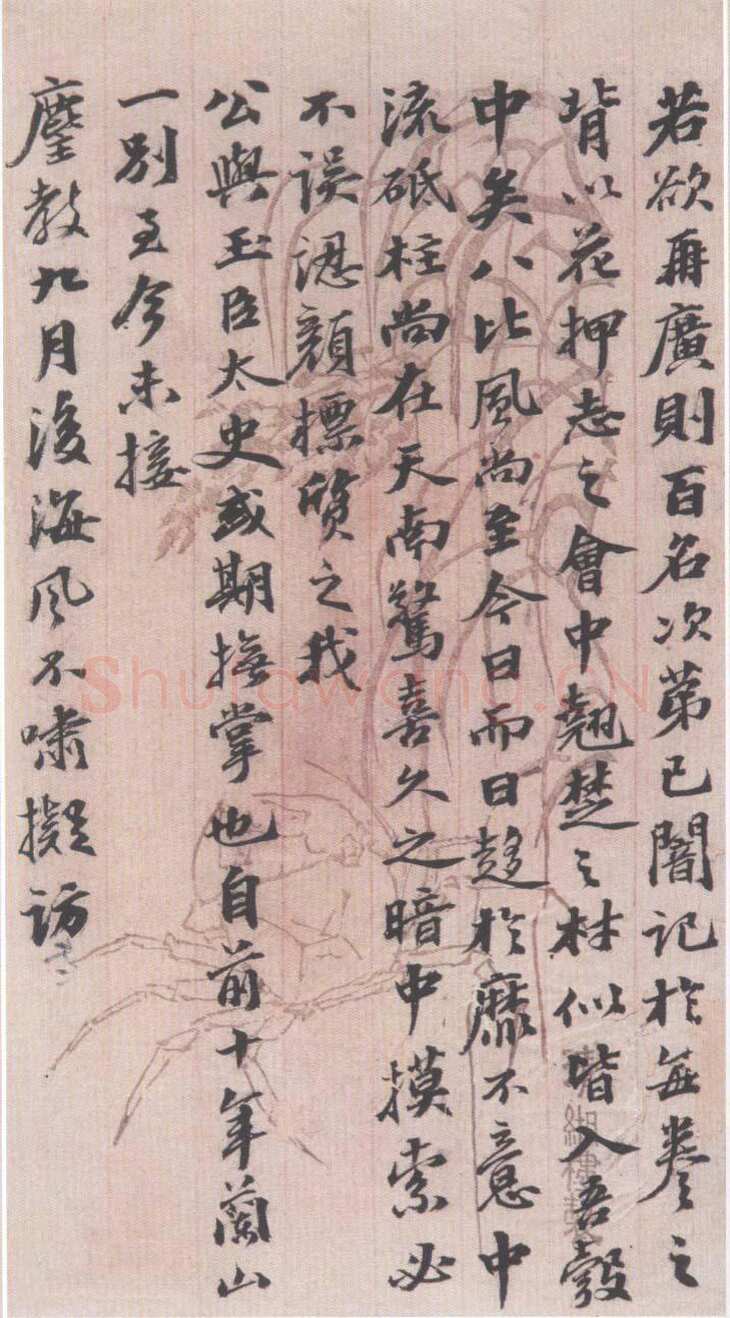 若欲再廣則百名次第已闇記於每卷之
背以花押志之會中翹楚之材似皆入吾彀
中矣八比風尚至今日而日趍於靡不意中
流砥柱尚在天南驚喜久之暗中摸索必
不誤認顏摽質之我
公與玉臣太史或期撫掌也自前十年蘭山
一別至今未接
麈教九月後海風不嘯擬訪
Shufawang.CN